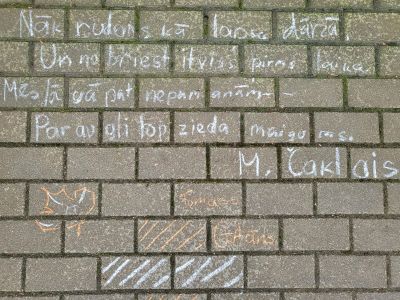 Nāk rudens kā lapsa dārzā!
Un nobriest itviss pirms laika.
Mēs tā gā pat nepamanām -
Par augli top zieda maigums.
M. Čaklais